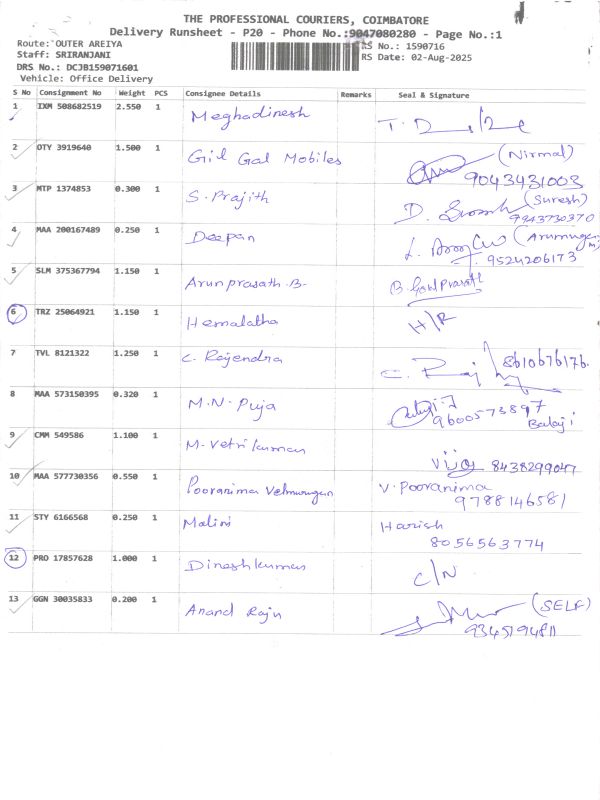 THE PROFESSIONAL COURIERS, COIMBATORE
Delivery Runsheet - P20 - Phone No.:9047080280 - Page No.:1
Route: OUTER AREIYA
RS No: 1590716
Staff: SRIRANJANI
RS Date: 02-Aug-2025
DRS No.: DCJB159071601
Vehicle: Office Delivery
S No Consignment No Weight PCS Consignee Details Remarks Seal & Signature
1 IXM 508682519 2.550 1 Meghadinesh T. D
2 OTY 3919640 1.500 1 Gid Gal Mobiles (Nirmal)
9043431003
3 MTP 1374853 0.300 1 S. Prajith D. (Suresh)
7943730370
4 MAA 200167489 0.250 1 Deepan L. (Arumugam)
9524206173
5 SLM 375367794 1.150 1 Arunprasath.B. B. Gokl Prasath
6 TRZ 25064921 1.150 1 Hemalatha H/R
7 TVL 8121322 1.250 1 C. Rajendra C. Raj 8610676176.
8 MAA 573150395 0.320 1 M.N. Puja
9600573897
Balaji
9 CMM 549586 1.100 1 M. Vetrikumar 8438299047
10 MAA 577730356 0.550 1 Pooranima Velmurugan V. Pooranima
9788146581
11 STY 6166568 0.250 1 Malini Harish
8056563774
12 PRO 17857628 1.000 1 Dineshkumar C/N
13 GGN 30035833 0.200 1 Anand Raju (SELF)
9345194811